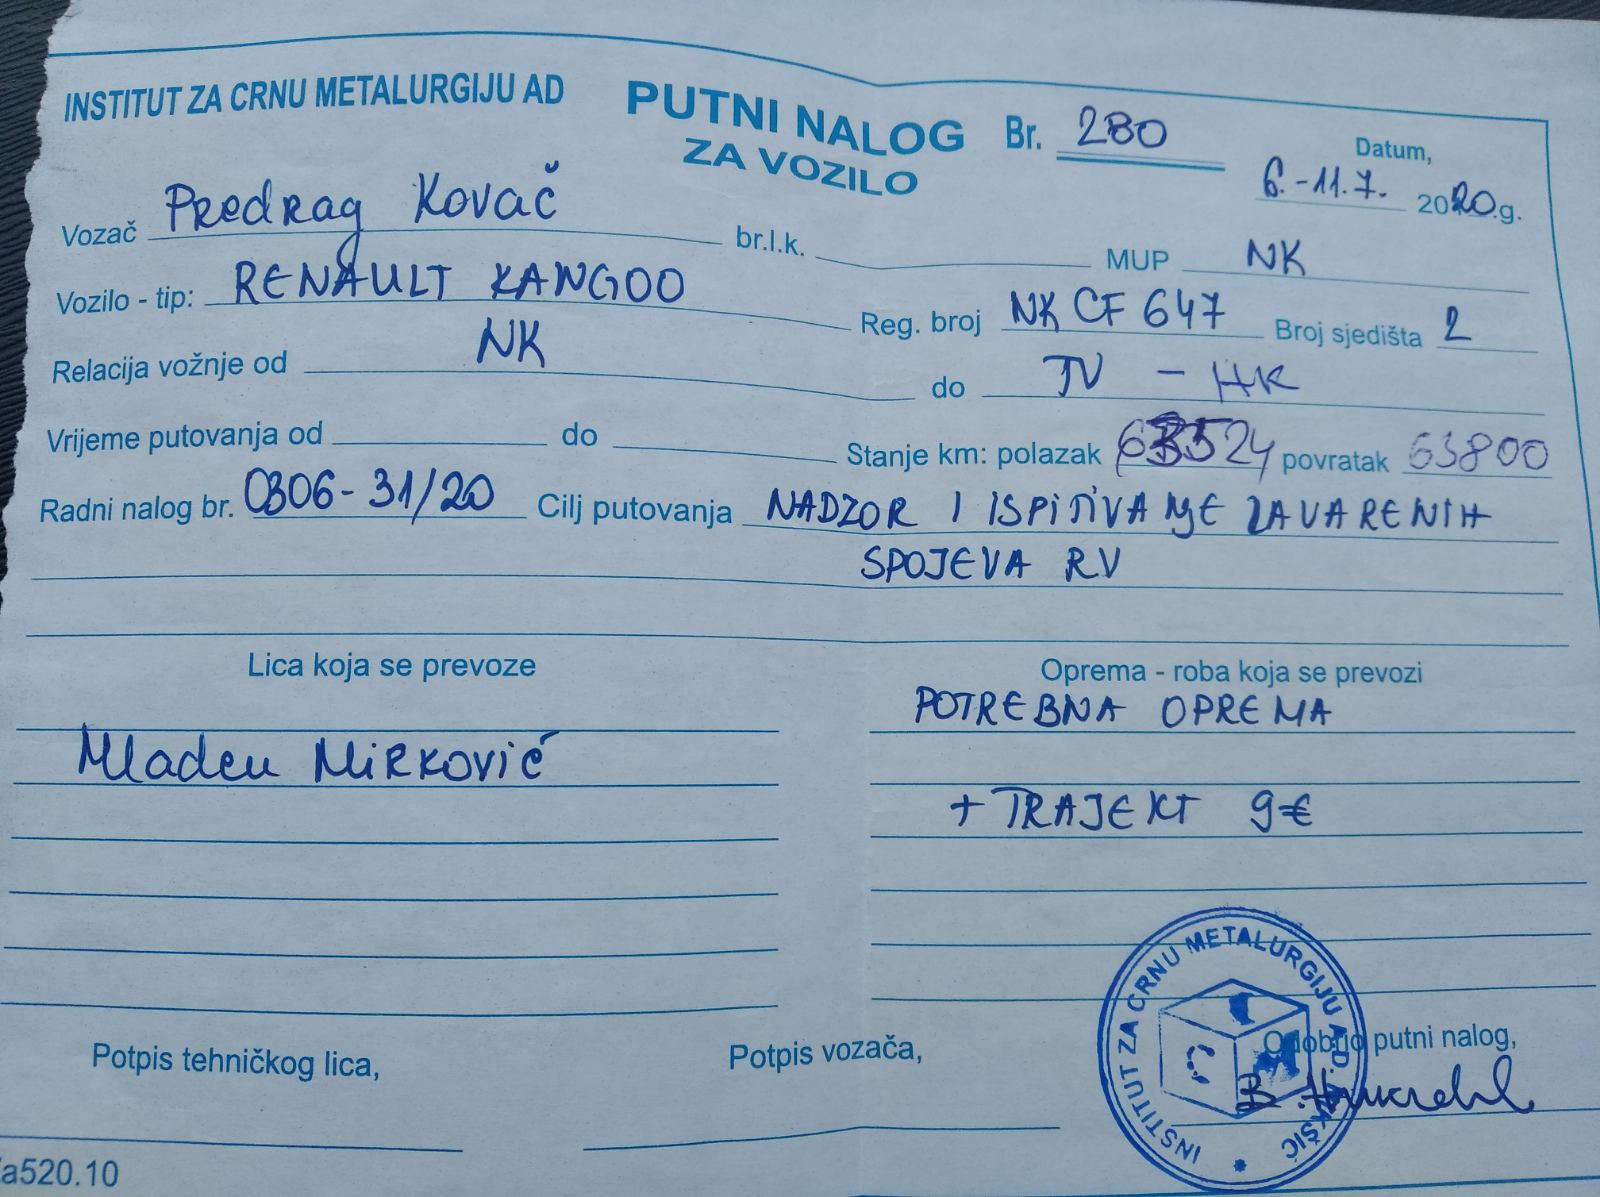 INSTITUT ZA CRNU METALURGIJU AD
PUTNI NALOG Br. 280
ZA VOZILO
Datum,
6.-11.7. 2020.g.
Vozač Predrag Kovač br.l.k. MUP NK
Vozilo - tip: RENAULT KANGOO Reg. broj NK CF 647 Broj sjedišta 2
Relacija vožnje od NK do TV - HK
Vrijeme putovanja od do Stanje km: polazak povratak 63800
Radni nalog br. 0306-31/20 Cilj putovanja NADZOR I ISPITIVANJE ZAVARENIH
SPOJEVA RV
Lica koja se prevoze Oprema - roba koja se prevozi
POTREBNA OPREMA
Mladen Mirković
+ TRAJEKT 9€
INSTITUT ZA CRNU METALURGIJU A.D.
Potpis tehničkog lica, Potpis vozača, Odobrio putni nalog,
a520.10